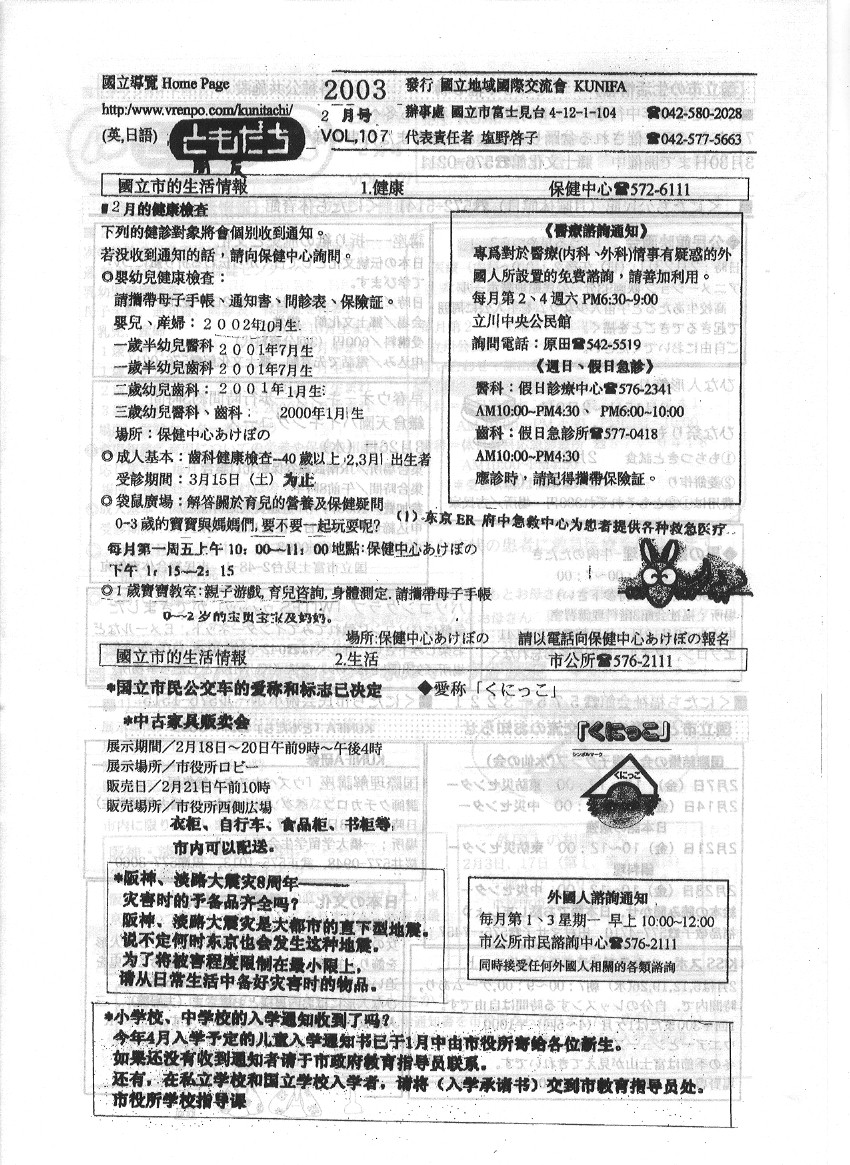 國立導覽 Home Page
http:/www.vrenpo.com/kunitachi/
(英,日語)
ともだち
朋友
2003
2 月号
VOL,107
發行 國立地域國際交流會 KUNIFA
辦事處 國立市富士見台 4-12-1-104 ☎042-580-2028
代表責任者 塩野啓子 ☎042-577-5663
國立市的生活情報 1.健康 保健中心☎572-6111
■2月的健康檢查
下列的健診對象將會個別收到通知。
若没收到通知的話，請向保健中心詢問。
◎嬰幼兒健康檢查：
請攜帶母子手帳、通知書、問診表、保險証。
嬰兒、産婦：２００2年10月生
一歲半幼兒醫科 ２００1年7月生
一歲半幼兒歯科 ２００1年7月生
二歲幼兒歯科：２００1年1月生
三歲幼兒醫科、歯科： 2000年1月生
場所：保健中心あけぼの
◎成人基本：歯科健康檢查–40歲以上,2,3月 出生者
受診期間：3月15日（土）为止
◎袋鼠廣場：解答關於育兒的營養及保健疑問
0-3歲的寶寶與媽媽們,要不要一起玩耍呢?
每月第一周五上午 10：00—11：00 地點:保健中心あけぼの
下午 1：15—2：15
◎1歲寶寶教室:親子游戲,育兒咨詢,身體測定.請攜帶母子手帳
0～2岁的宝贝宝宝及妈妈。
場所:保健中心あけぼの 請以電話向保健中心あけぼの報名
《醫療諮詢通知》
專爲對於醫療(内科、外科)情事有疑惑的外
國人所設置的免費諮詢，請善加利用。
每月第２、４週六 PM6:30~9:00
立川中央公民館
詢問電話：原田☎542-5519
《週日、假日急診》
醫科：假日診療中心☎576-2341
AM10:00~PM4:30、 PM6:00~10:00
歯科：假日急診所☎577-0418
AM10:00~PM4:30
應診時，請記得攜帶保險証。
(1) 东京 ER 府中急救中心为患者提供各种救急医疗
國立市的生活情報 2.生活 市公所☎576-2111
*国立市民公交车的爱称和标志已决定 ◆愛称「くにっこ」
*中古家具贩卖会
展示期間／2月18日～20日午前9時～午後4時
展示場所／市役所ロビー
販売日／2月21日午前10時
販売場所／市役所西側広場
衣柜、自行车、食品柜、书柜等,
市内可以配送。
「くにっこ」
シンボルマーク
くにっこ
*阪神、淡路大震灾8周年———
灾害时的予备品齐全吗?
阪神、淡路大震灾是大都市的直下型地震。
说不定何时东京也会发生这种地震。
为了将被害程度限制在最小限上，
请从日常生活中备好灾害时的物品。
外國人諮詢通知
每月第１、３星期一 早上 10:00~12:00
市公所市民諮詢中心☎576-2111
同時接受任何外國人相關的各類諮詢
*小学校、中学校的入学通知收到了吗?
今年4月入学予定的儿童入学通知书已于1月中由市役所寄给各位新生。
如果还没有收到通知者请于市政府教育指导员联系。
还有，在私立学校和国立学校入学者，请将（入学承诺书）交到市教育指导员处。
市役所学校指导课